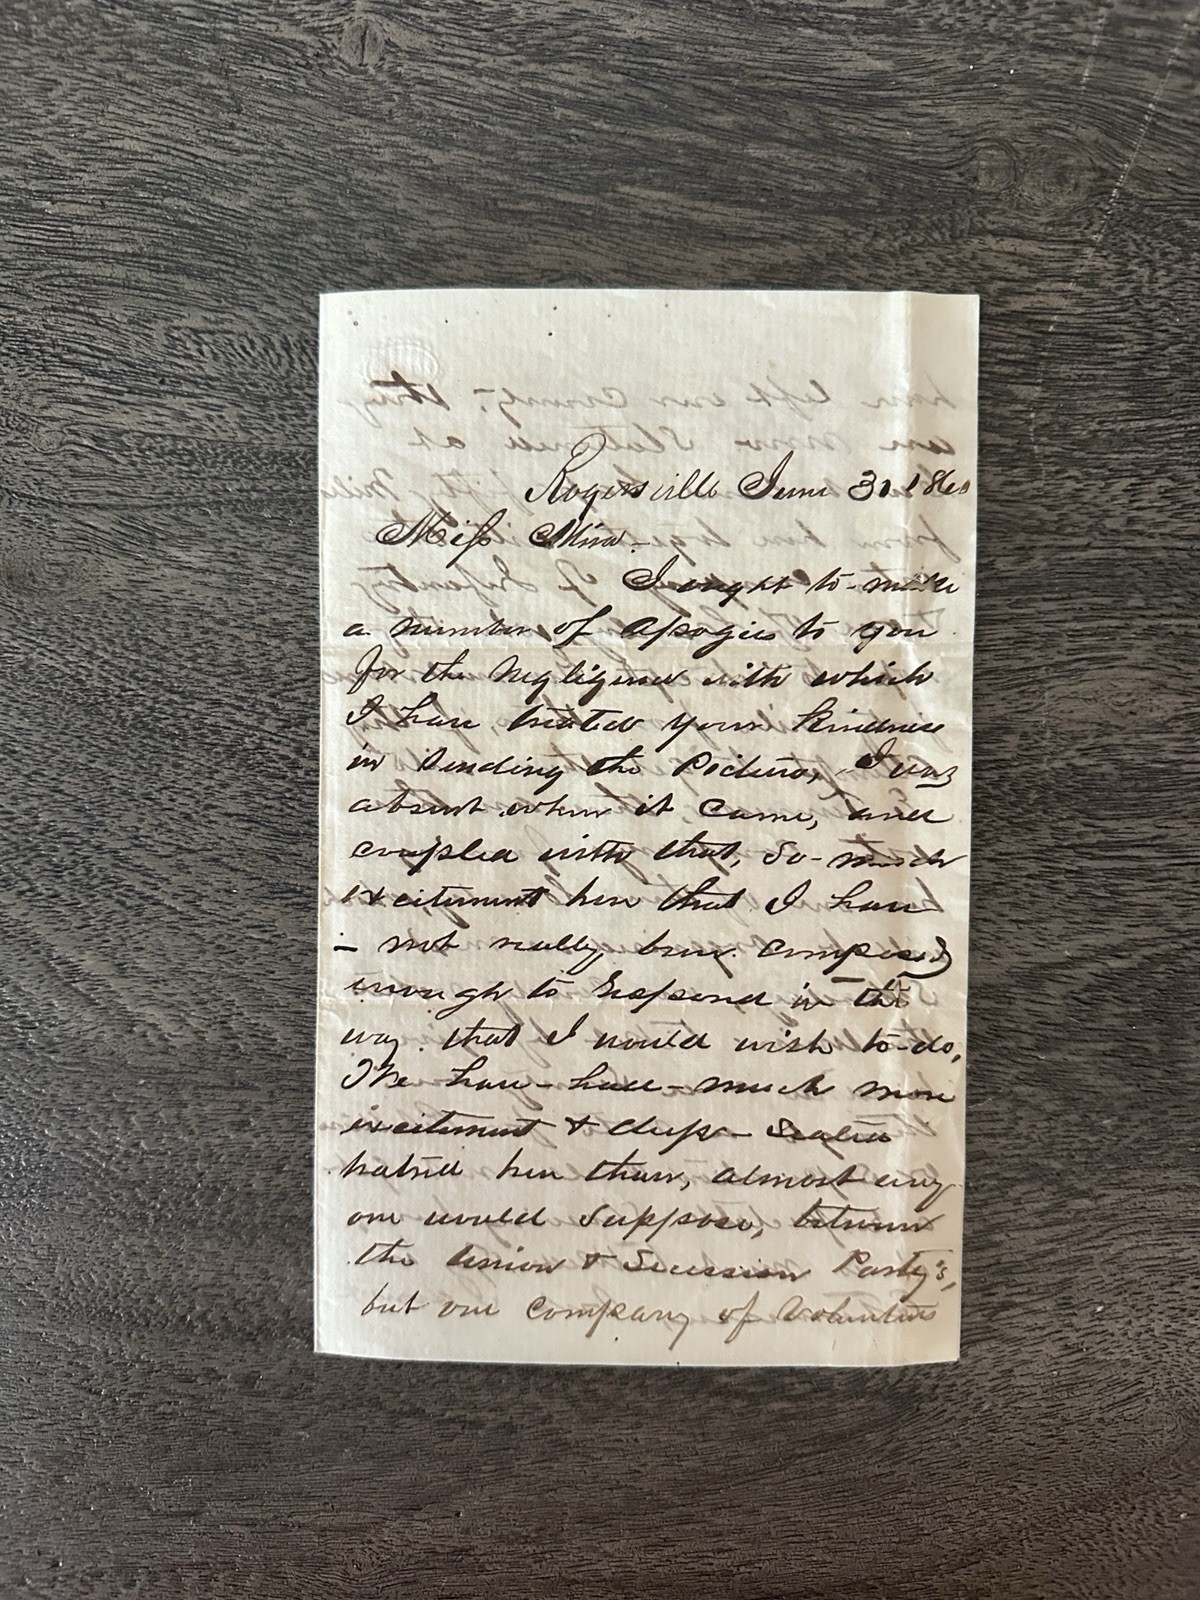 Rogersville June 31 186
Miss Mira -
I ought to - make
a number of Apogies to you
for the Negligence with which
I have treated your kindness
in Sending the Picture, I was
absent when it Came, and
coupled with that, So - much
excitement here that I have
- not really been composed
enough to Respond in the
way that I would wish to - do,
We have - had - much more
excitement & deep - Seated
hatred here than, almost any
one would Suppose, between
the Union & Secession Party's,
but one company of Volunteers